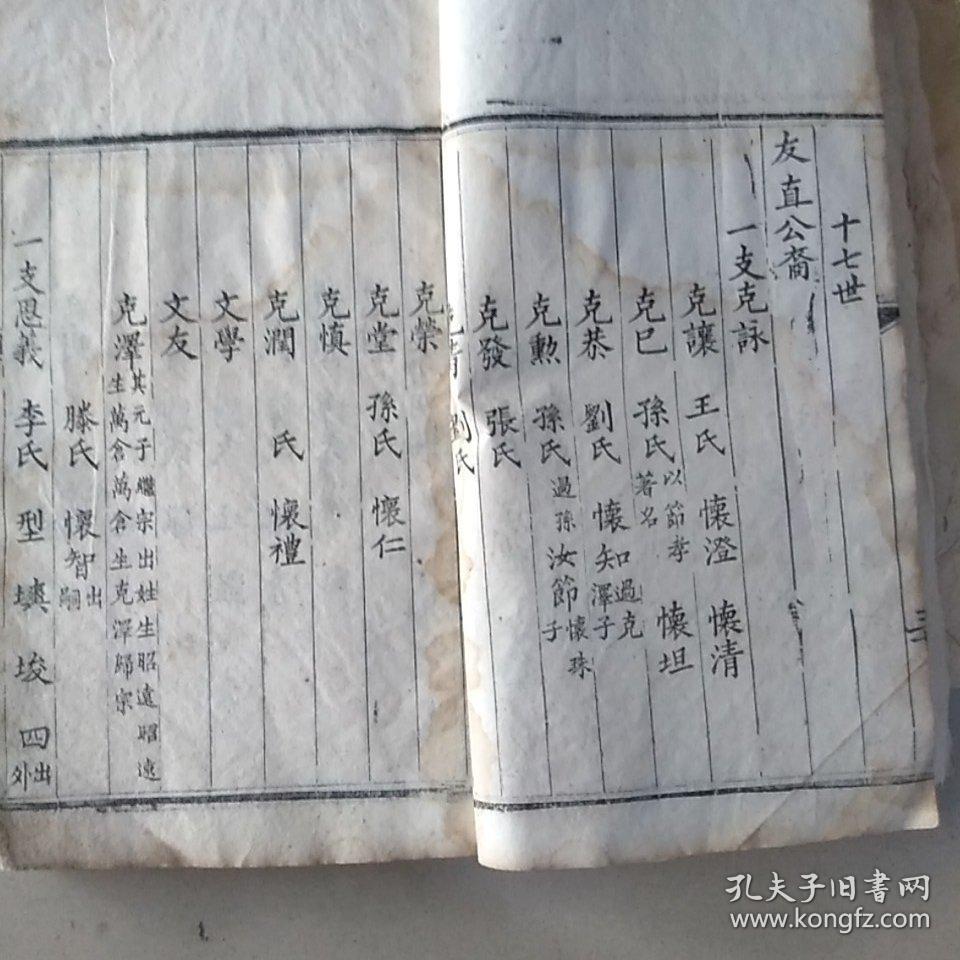 十七世
友直公裔
一支克詠
克讓 王氏 懷澄 懷清
克巳 孫氏 以節孝著名 懷坦
克恭 劉氏 懷知 過克澤子
克勲 孫氏 過孫汝節子懷珠
克發 張氏
劉氏
克榮
克堂 孫氏 懷仁
克慎
克潤 氏 懷禮
文學
文友
克澤 其元子繼宗出姓生昭遠昭遠生萬倉萬倉生克澤歸宗
滕氏 懷智 出嗣
一支恩義 李氏 型 墺 埈 四 出外
三
孔夫子旧书网
www.kongfz.com